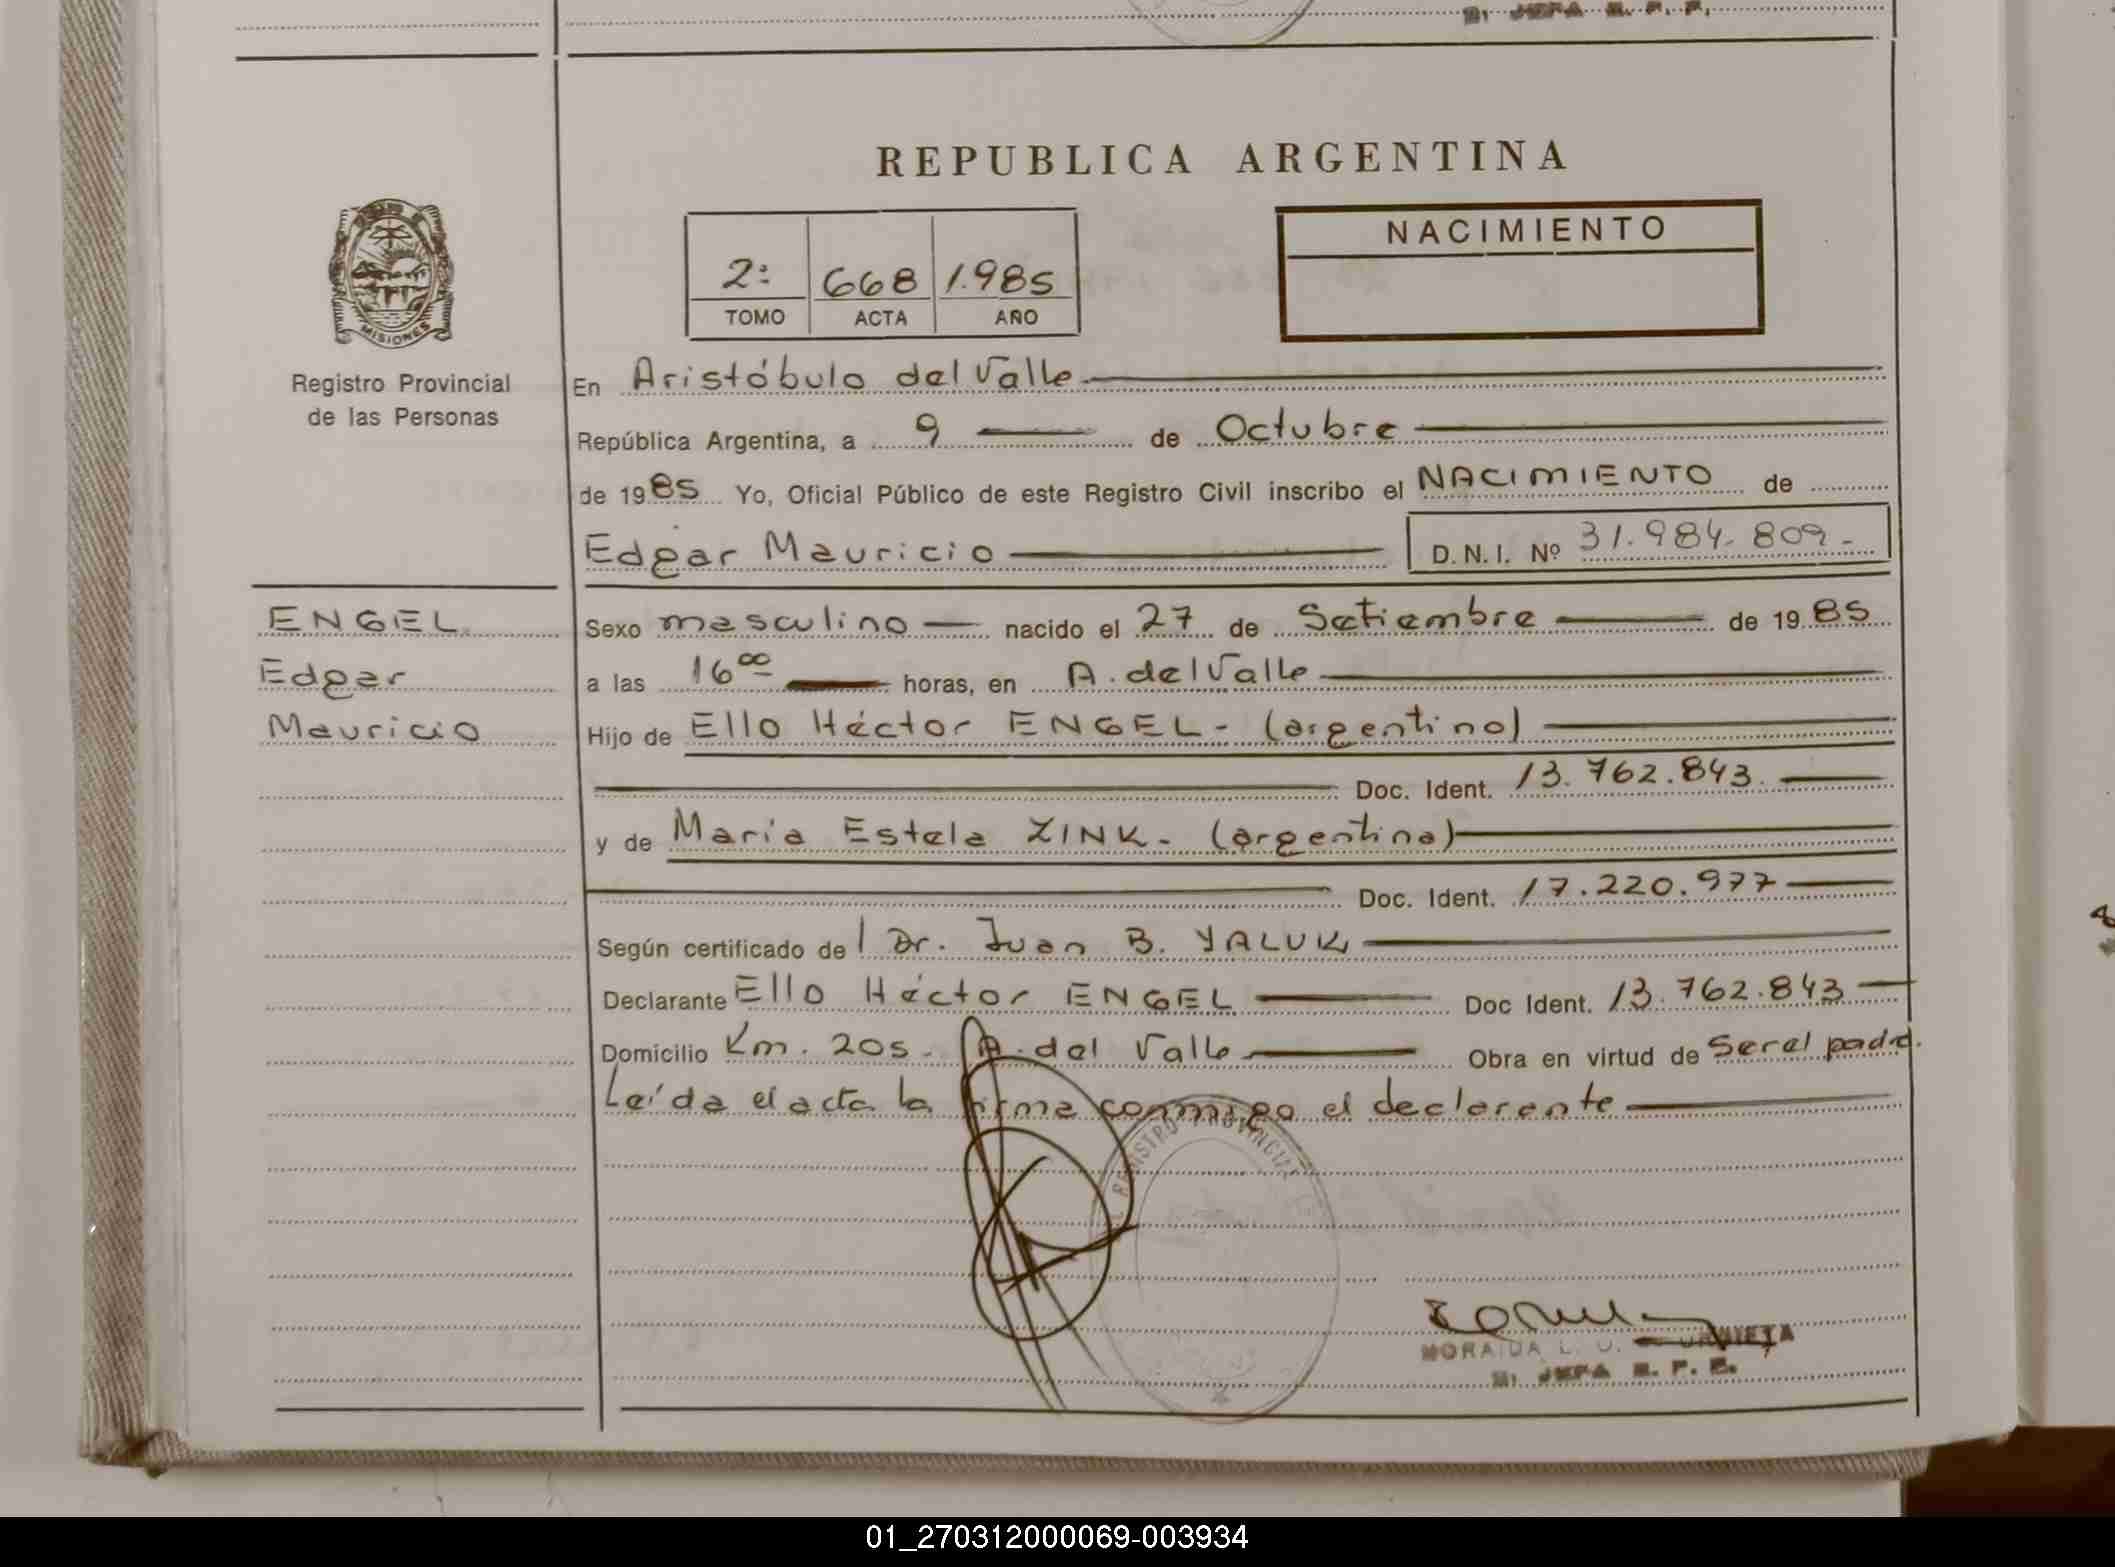 JEFA
REPUBLICA ARGENTINA
NACIMIENTO
2: 668 1.985
TOMO ACTA AÑO
MISIONES
Registro Provincial
de las Personas
En Aristóbulo del Valle
República Argentina, a 9 de Octubre
de 1985 Yo, Oficial Público de este Registro Civil inscribo el NACIMIENTO de
Edgar Mauricio D.N.I. Nº 31.984.809.-
ENGEL
Edgar
Mauricio
Sexo masculino nacido el 27 de Setiembre de 1985
a las 16 00 horas, en A. del Valle
Hijo de Ello Héctor ENGEL - (argentino)
Doc. Ident. 13.762.843.
y de María Estela ZINK. (argentina)
Doc. Ident. 17.220.977
Según certificado de l Dr. Juan B. YALUK
Declarante Ello Héctor ENGEL Doc Ident. 13.762.843
Domicilio Km. 205. A. del Valle Obra en virtud de Ser el padre.
Leída el acta la firma conmigo el declarante
REGISTRO PROVINCIAL
MORAIDA L. U. URMIETA
JEFA
01_270312000069-003934